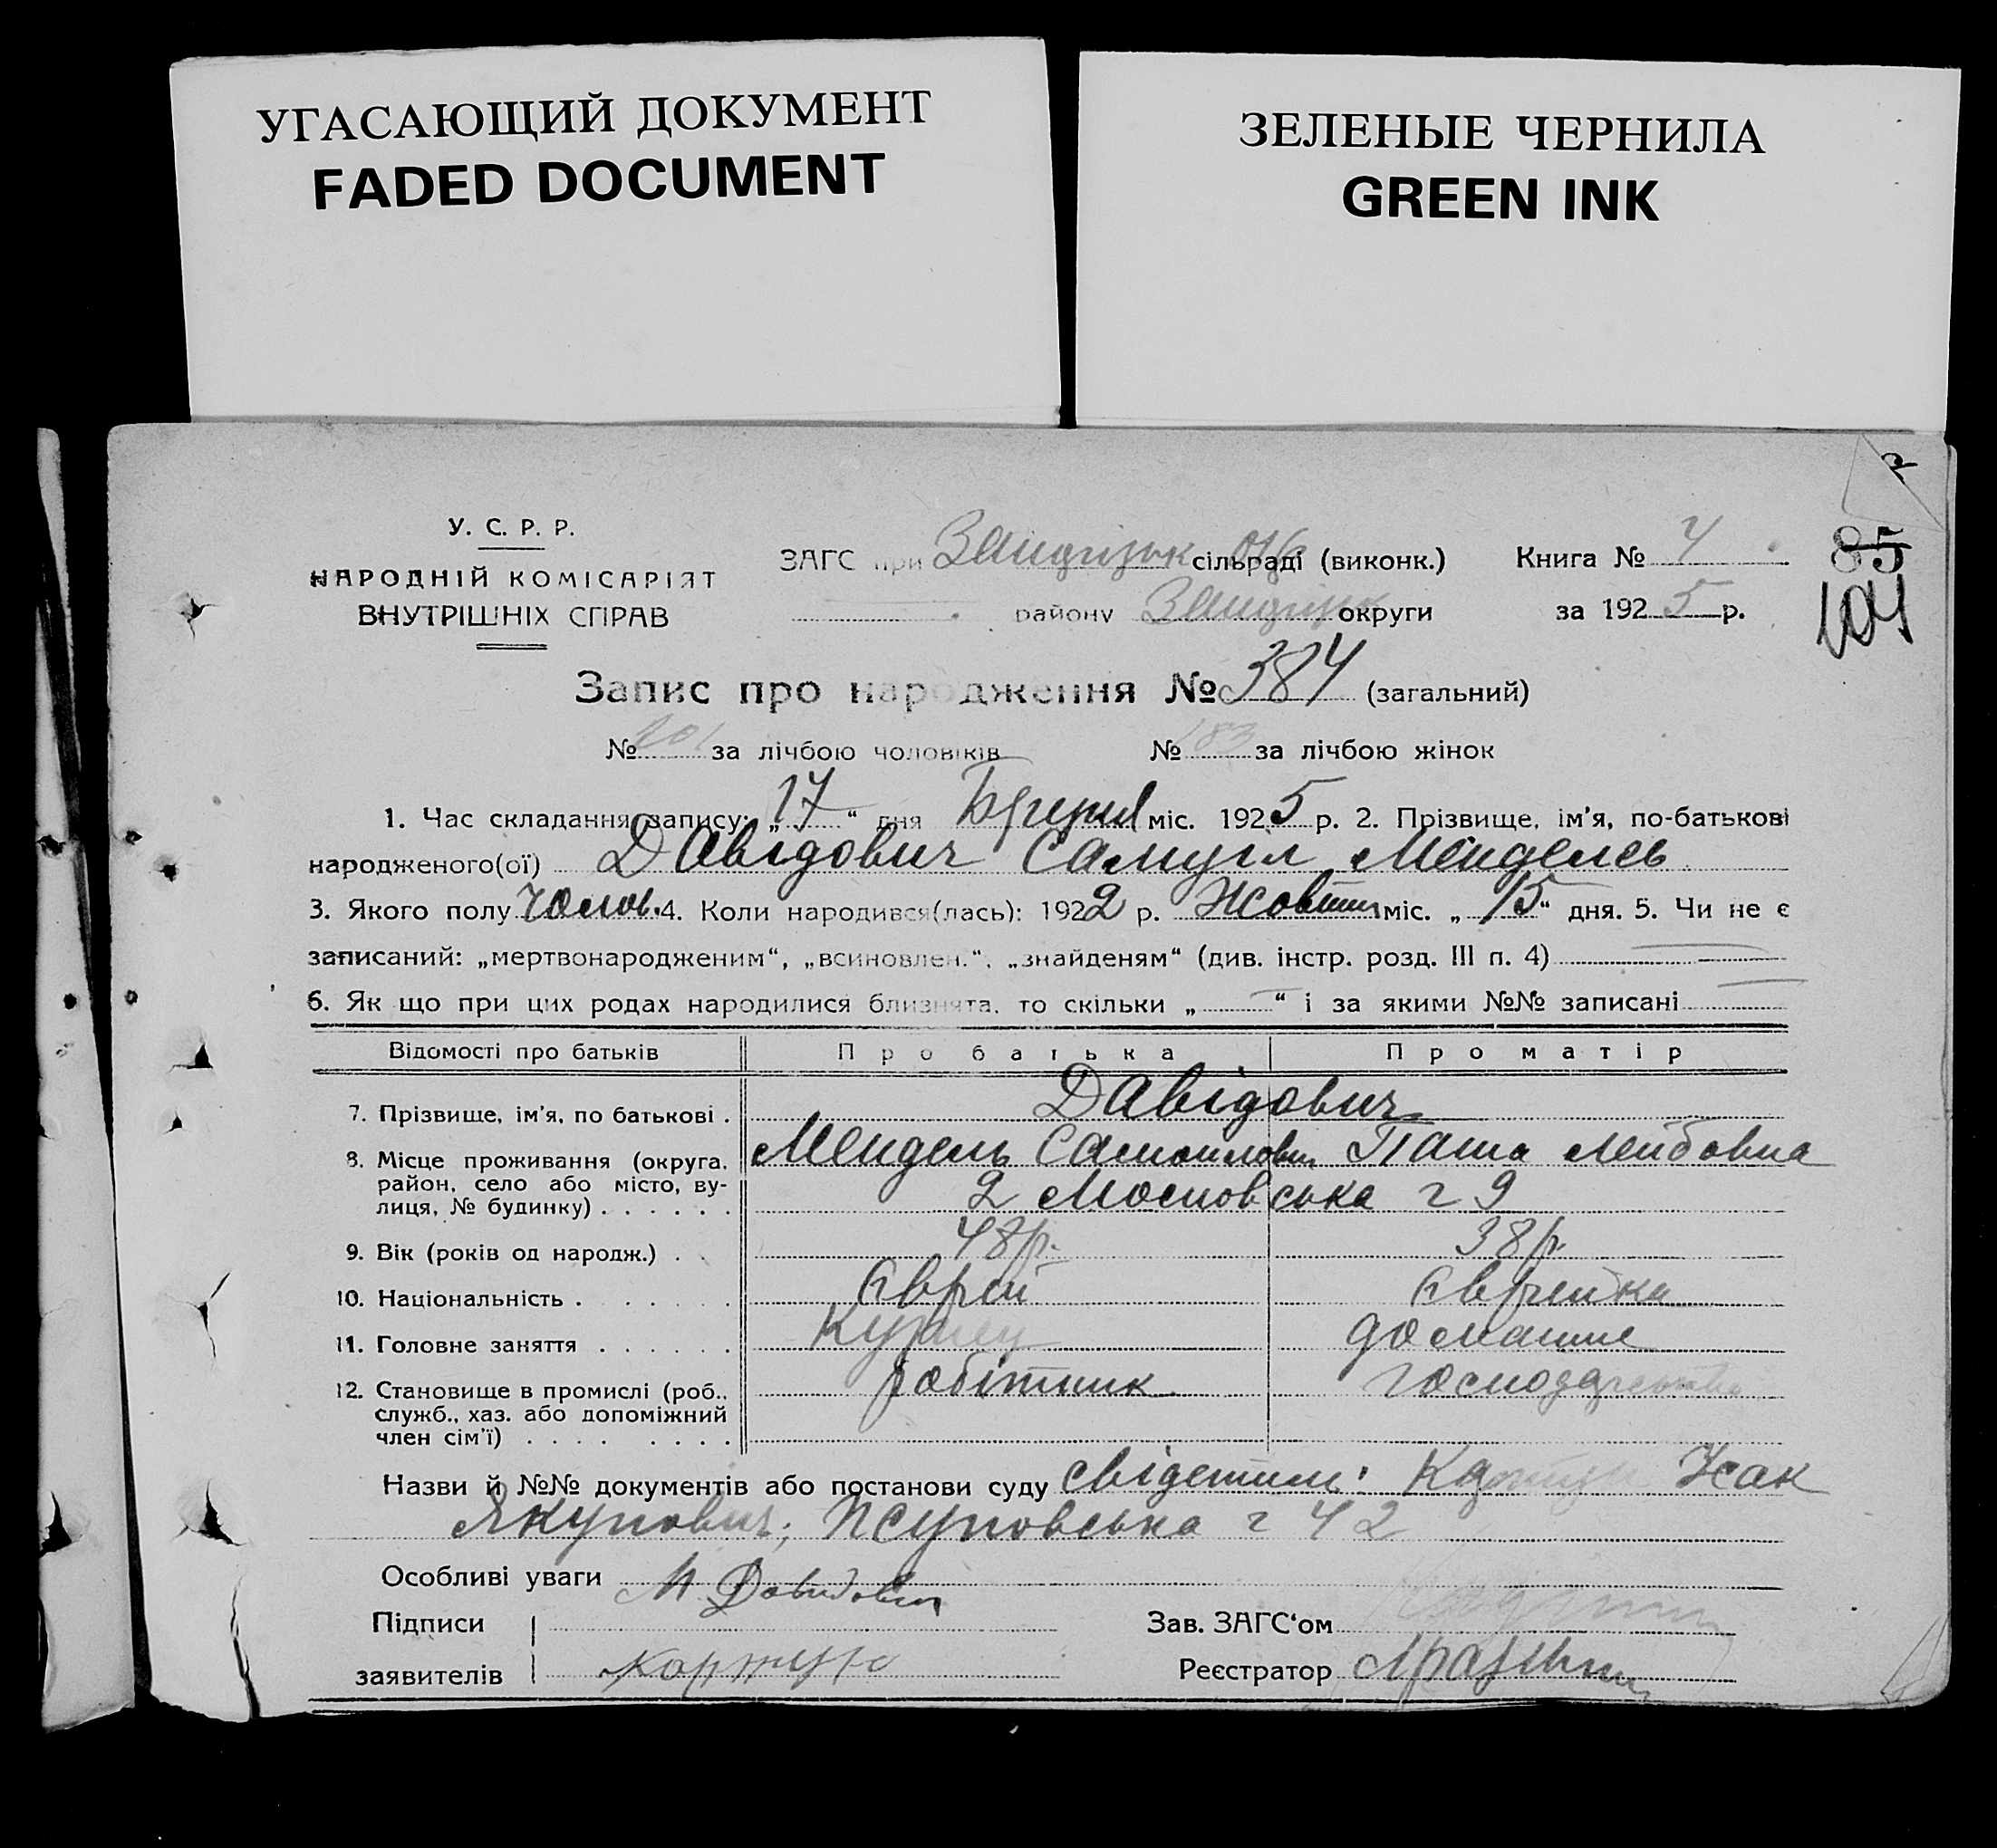 УГАСАЮЩИЙ ДОКУМЕНТ
FADED DOCUMENT
ЗЕЛЕНЫЕ ЧЕРНИЛА
GREEN INK
У. С. Р. Р.
НАРОДНІЙ КОМІСАРІЯТ
ВНУТРІШНІХ СПРАВ
ЗАГС при сільраді (виконк.)
району округи
Книга № 4
за 1925 р.
85
101
Запис про народження № 384 (загальний)
№ 201 за лічбою чоловіків № 183 за лічбою жінок
1. Час складання запису: „17“ дня міс. 1925 р. 2. Прізвище, ім’я, по-батькові
народженого(ої) Давідович Самуіл Менделев
3. Якого полу Чолов. 4. Коли народився(лась): 1922 р. Жовтня міс. „15“ дня. 5. Чи не є
записаний: „мертвонародженим“, „всиновлен.“, „знайденям“ (див. інстр. розд. III п. 4)
6. Як що при цих родах народилися близнята, то скільки „ — “ і за якими №№ записані —
Відомості про батьків Про батька Про матір
7. Прізвище, ім’я, по батькові . Давідович
Мендель Самойлович Паша Лейбовна
8. Місце проживання (округа,
район, село або місто, ву-
лиця, № будинку) . . . . . . 2 Московська 29
9. Вік (років од народж.) . . 48 р. 38 р.
10. Національність . . . . . . Єврей Єврейка
11. Головне заняття . . . . . . домашнє
12. Становище в промислі (роб., робітник господарство
служб., хаз. або допоміжний
член сім’ї) . . . . . . . .
Назви й №№ документів або постанови суду свідетели:
Якупович;
Особливі уваги
М Довидович
Підписи
заявителів
Зав. ЗАГС‘ом
Реєстратор